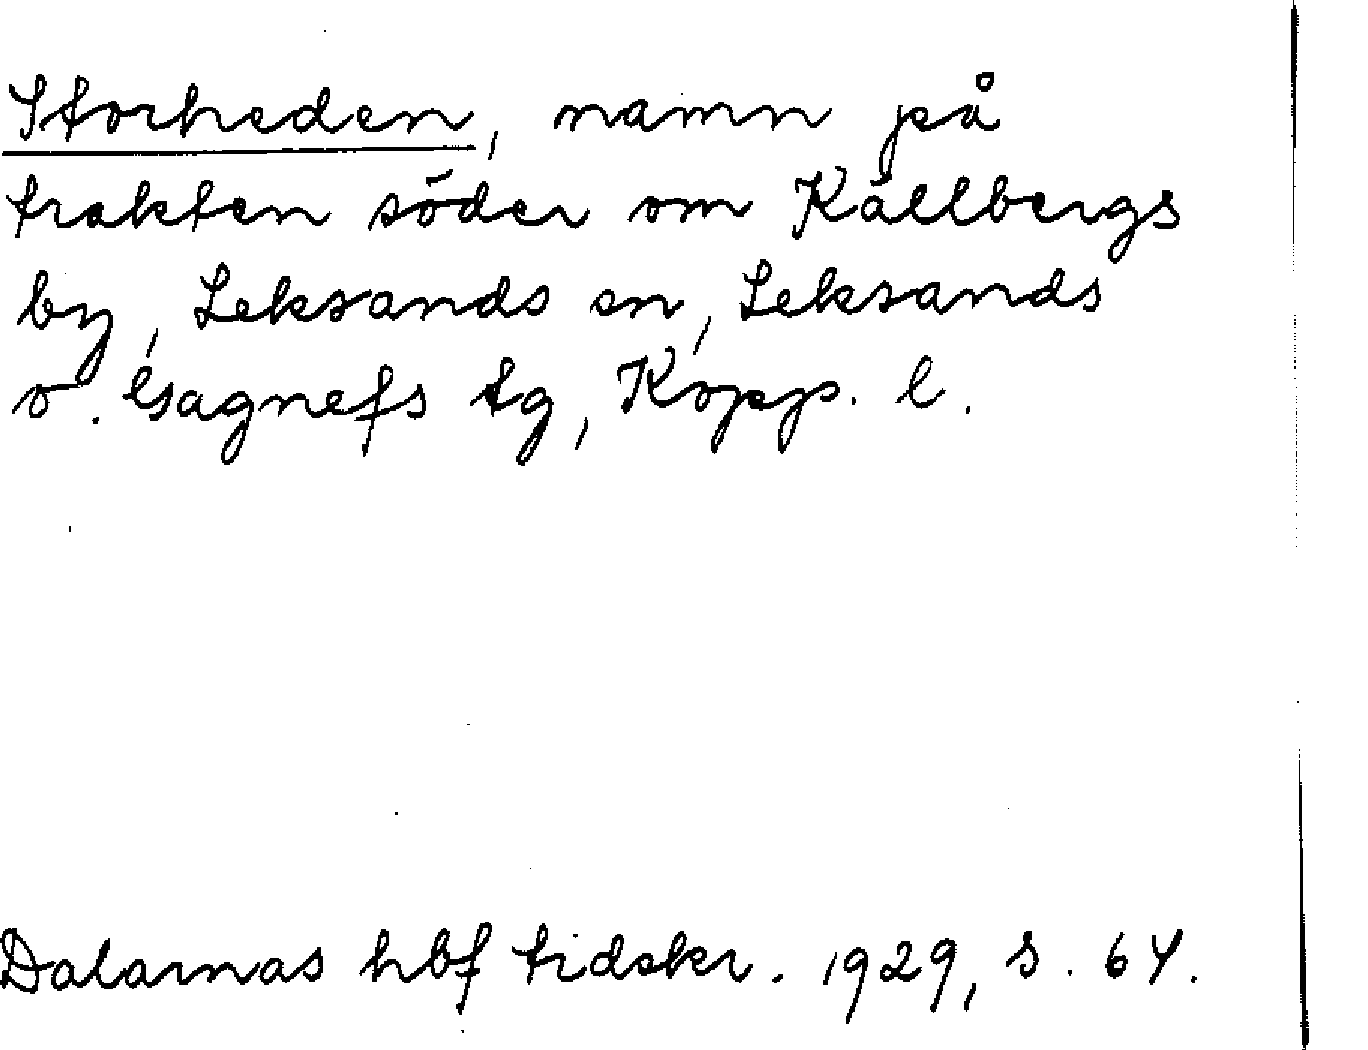 Storheden, namn på
trakten söder om Källbergs
by, Leksands sn, Leksands
o. Gagnefs tg, Kopp. l.
Dalarnas hbf tidskr. 1929, s. 64.